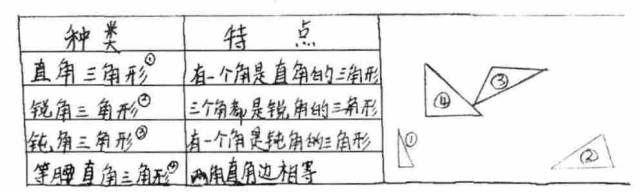 种类 特点
直角三角形① 有一个角是直角的三角形
锐角三角形② 三个角都是锐角的三角形
钝角三角形③ 有一个角是钝角的三角形
等腰直角三角形④ 两角直角边相等
④ ③
① ②